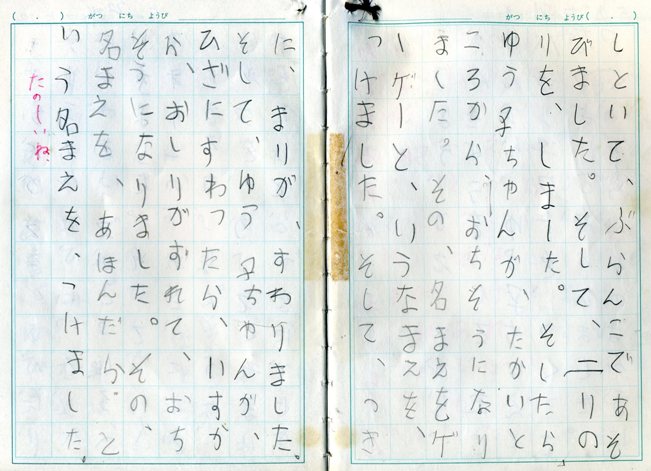 がつ にち ようび( . )
しといて、ぶらんこであそ
びました。そして、二りの
りを、しました。そしたら
ゆう子ちゃんが、たかいと
ころから、おちそうになり
ました。その、名まえをゲ
ーゲーと、いうなまえを、
つけました。そして、つぎ
( . ) がつ にち ようび
に、まりが、すわりました。
そして、ゆう子ちゃんが、
ひざにすわったら、いすか
ら、おしりがずれて、おち
そうになりました。その、
名まえを、あほんだら。と
いう名まえを、つけました。
たのしいね。